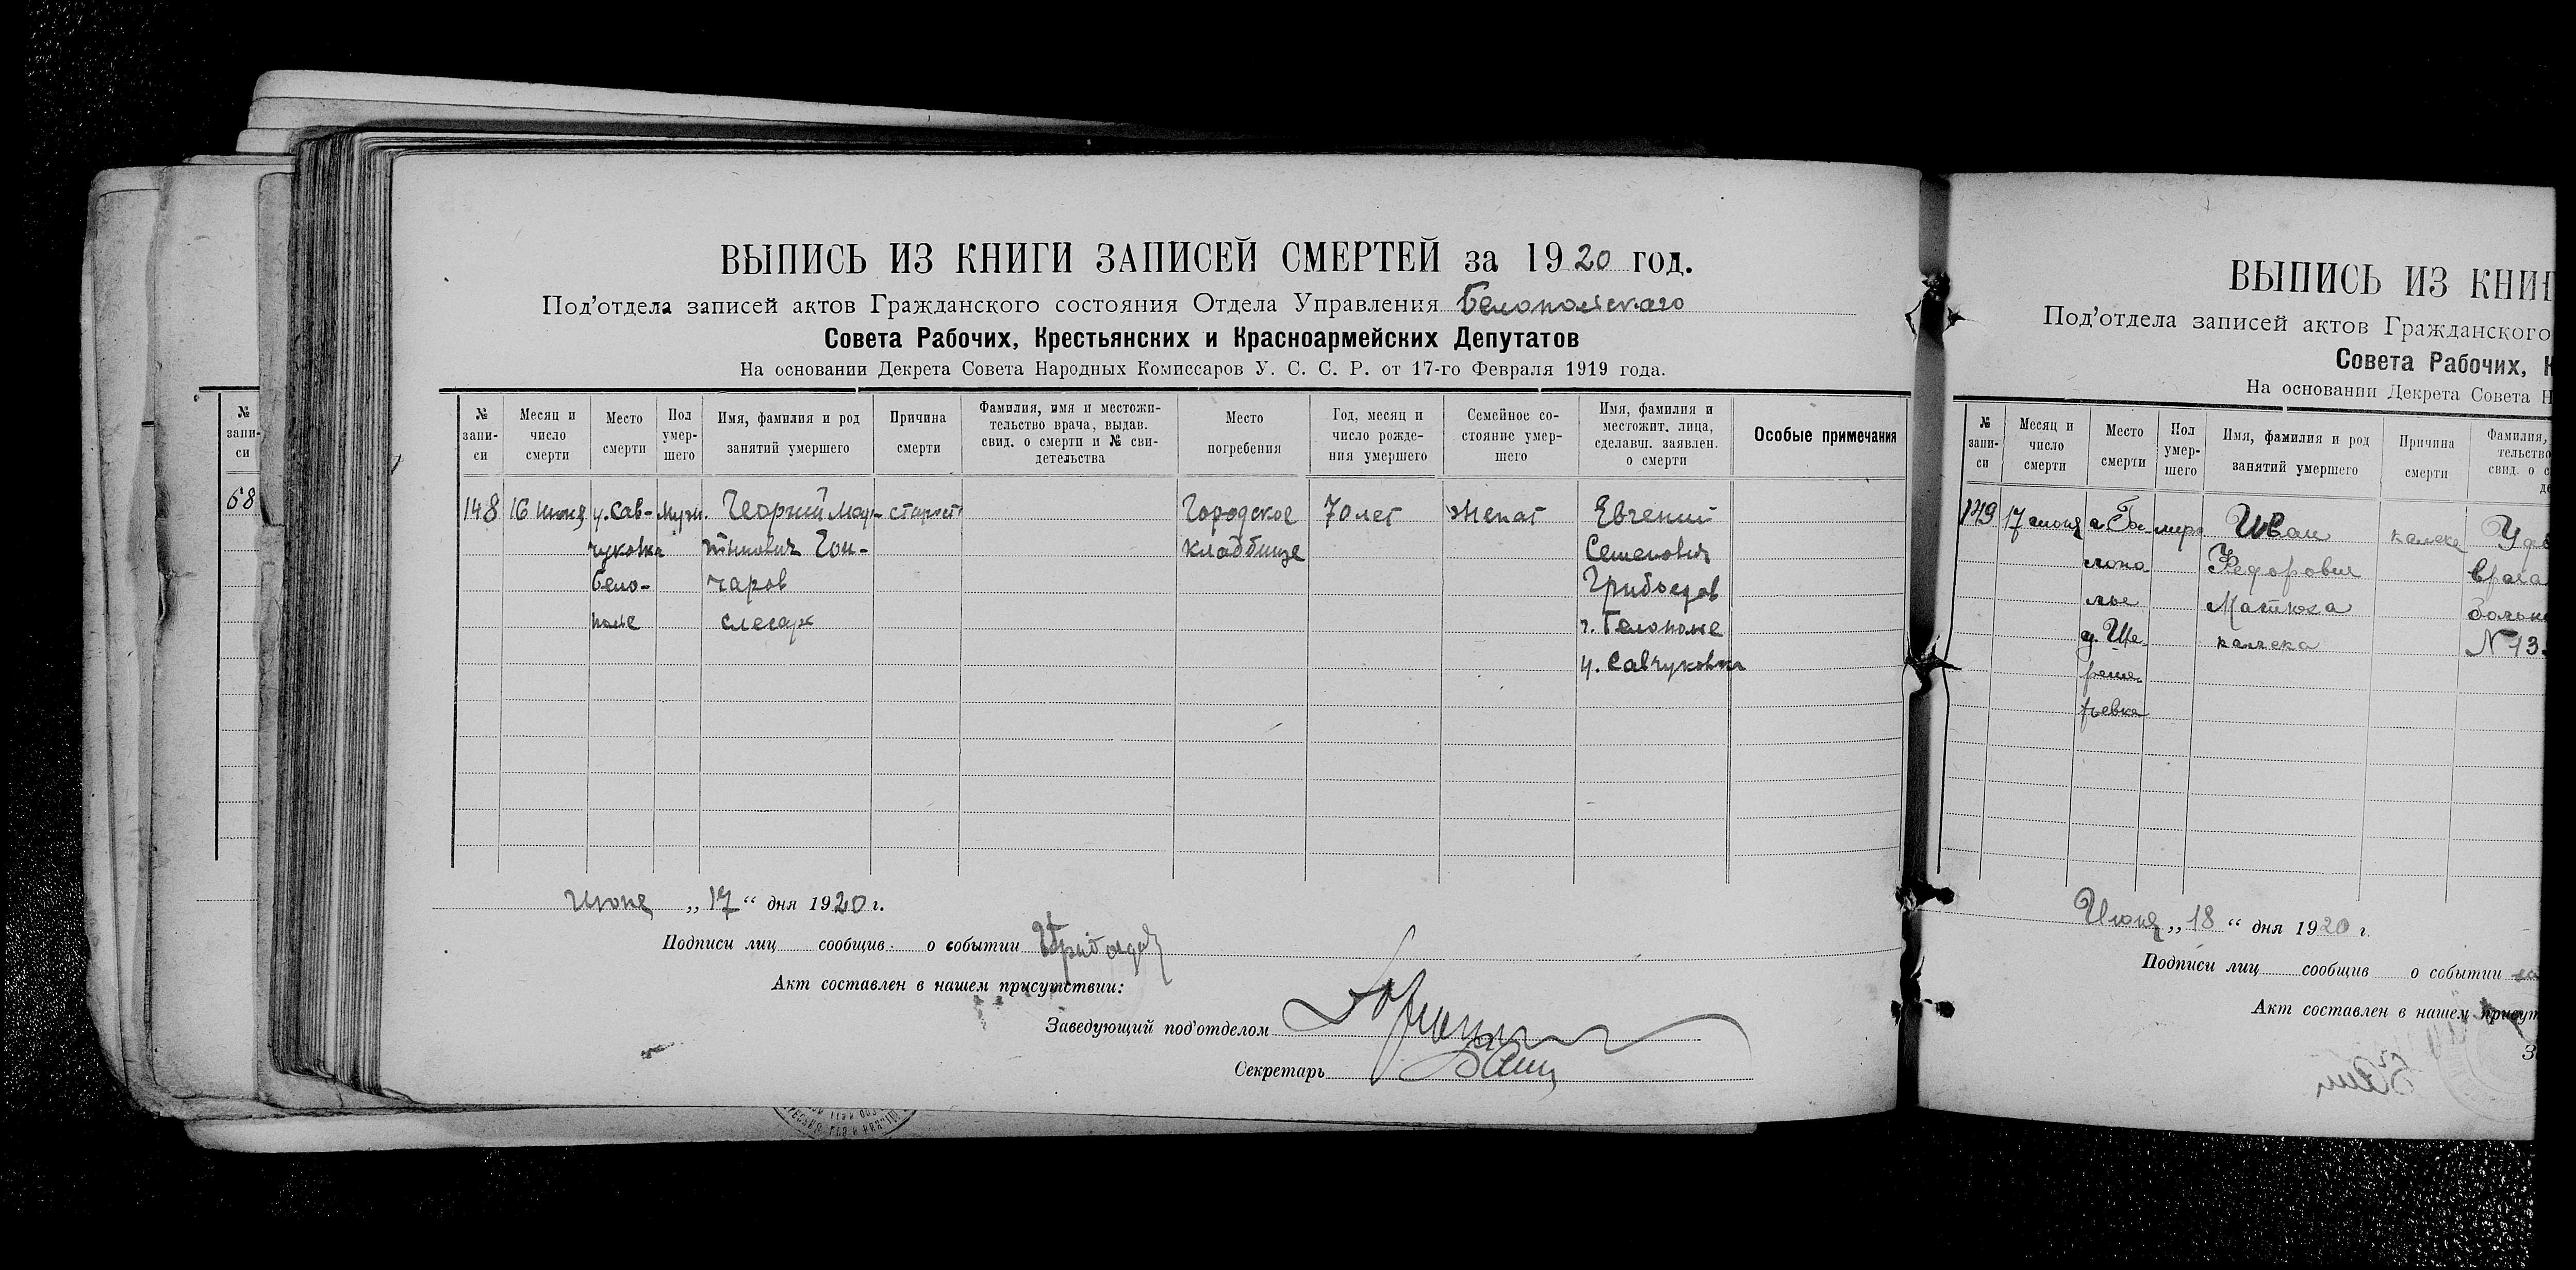 ВЫПИСЬ ИЗ КНИГИ ЗАПИСЕЙ СМЕРТЕЙ за 1920 год.
Под'отдела записей актов Гражданского состояния Отдела Управления Белопольскаго
Совета Рабочих, Крестьянских и Красноармейских Депутатов
На основании Декрета Совета Народных Комиссаров У. С. С. Р. от 17-го Февраля 1919 года.
№ запи-си
Месяц и число смерти
Место смерти
Пол умер-шего
Имя, фамилия и род занятий умершего
Причина смерти
Фамилия, имя и местожи-тельство врача, выдав. свид. о смерти и № сви-детельства
Место погребения
Год, месяц и число рожде-ния умершего
Семейное со-стояние умер-шего
Имя, фамилия и местожит. лица, сделавш. заявлен. о смерти
Особые примечания
148 16 июня ч. Сав- Муж. Георгий Мар- старость Городское 70 лет женат Евгений
чуковка тынович Гон- кладбище Семенович
Бело- чаров Грибоедов
полье слесарь г. Белополье
ч. Савчуковка
Июня „17“ дня 1920 г.
Подписи лиц сообщив. о событии Грибоедов
Акт составлен в нашем присутствии:
Заведующий под'отделом
Секретарь
№ запи-си
68
ВЫПИСЬ ИЗ КНИГ
Под'отдела записей актов Гражданского
Совета Рабочих,
На основании Декрета Совета
№ запи-си
Месяц и число смерти
Место смерти
Пол умер-шего
Имя, фамилия и род занятий умершего
Причина смерти
Фамилия,
тельство
свид. о
149 17 июня г. Бе- Иван калека
лопо Федорович врача
лье Матюха
калека №13
Июня „18“ дня 1920 г.
Подписи лиц сообщив о событии
Акт составлен в нашем присут